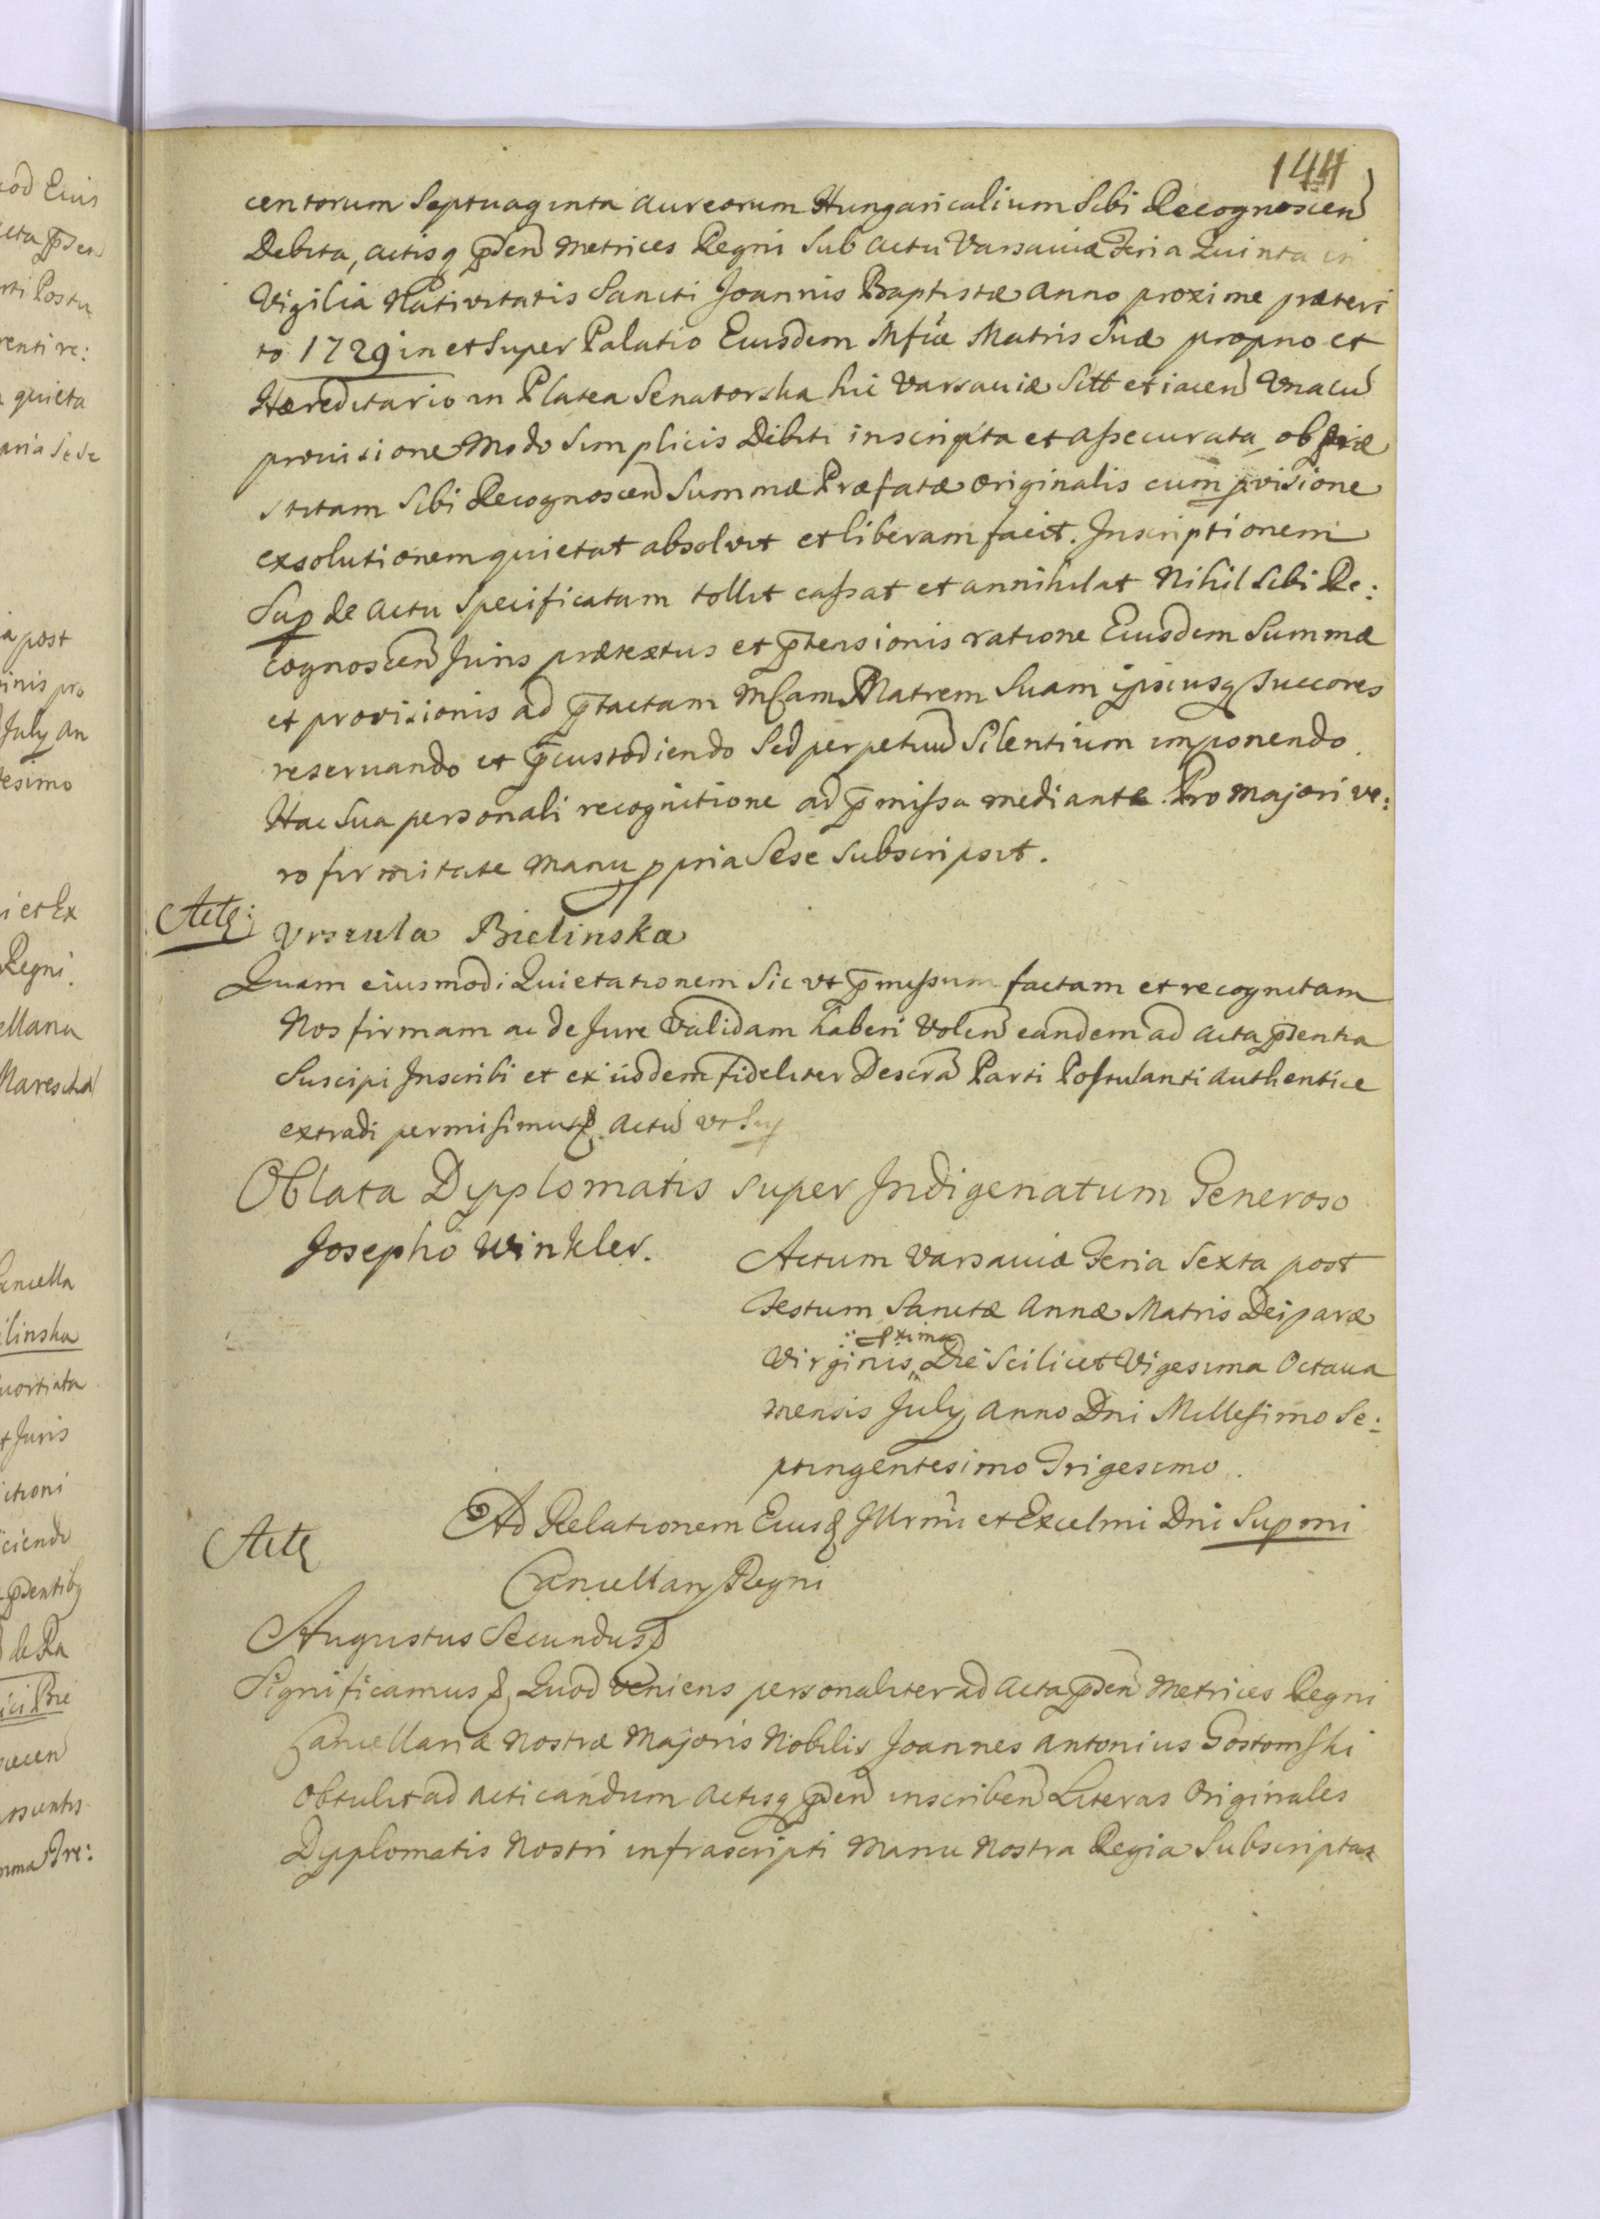 144
centorum Septuaginta aureorum Hungaricalium Sibi Recognoscen
Debita, actisq pden Metrices Regni Sub actu Varsaviæ Feria Quinta in
Vigilia Nativitatis Sancti Joannis Baptistæ anno proxime præteri
to 1729 in et Super Palatio Eiusdem Mfcæ Matris Suæ proprio et
Hæreditario in Platea Senatorska hic Varsaviæ Sitt et iacen Vnacu
provisione Modo Simplicis Debiti inscripta et assecurata, ob
stitam Sibi Recognoscen Summæ Præfatæ originalis cum pvisione
exsolutionem quietat absolvit et liberam facit. Inscriptionem
Sup de actu Specificatam tollit cassat et annihilat Nihil Sibi Re:
cognoscen Juris prætextus et ptensionis ratione Eiusdem Summæ
et provisionis ad ptactam Mfcam Matrem Suam ipsiusq Succores
reservando et pcustodiendo Sed perpetuu Silentium imponendo.
Hac Sua personali recognitione ad pmissa mediante. Pro majori ve:
ro firmitate Manu ppria Sese Subscripsit.
Urszula Bielinska
Quam eiusmodi Quietationem Sic ut pmissum factam et recognitam
Nos firmam ac de Jure Validam haberi Volen eandem ad acta pdentia
Suscipi Inscribi et ex iisdem fideliter Descra Parti Postulanti authentice
extradi permisimus actu ut Sup
Oblata Dyplomatis super Indigenatum Generoso
Josepho Winkler.
Actum Varsaviæ Feria Sexta post
Festum Sanctæ Annæ Matris Deiparæ
pxima
Virginis, Die Scilicet Vigesima Octava
mensis July Anno Dni Millesimo Se:
ptingentesimo Trigesimo.
Ad Relationem Eiusd Illrmi et Excelmi Dni Supmi
Cancellarij Regni
Augustus Secundus
Significamus Quod veniens personaliter ad acta pden Metrices Regni
Cancellariæ Nostræ Majoris Nobilis Joannes Antonius Gostomski
obtulit ad acticandum actisq pden inscriben Literas Originales
Dyplomatis Nostri infrascripti Manu Nostra Regia Subscriptas